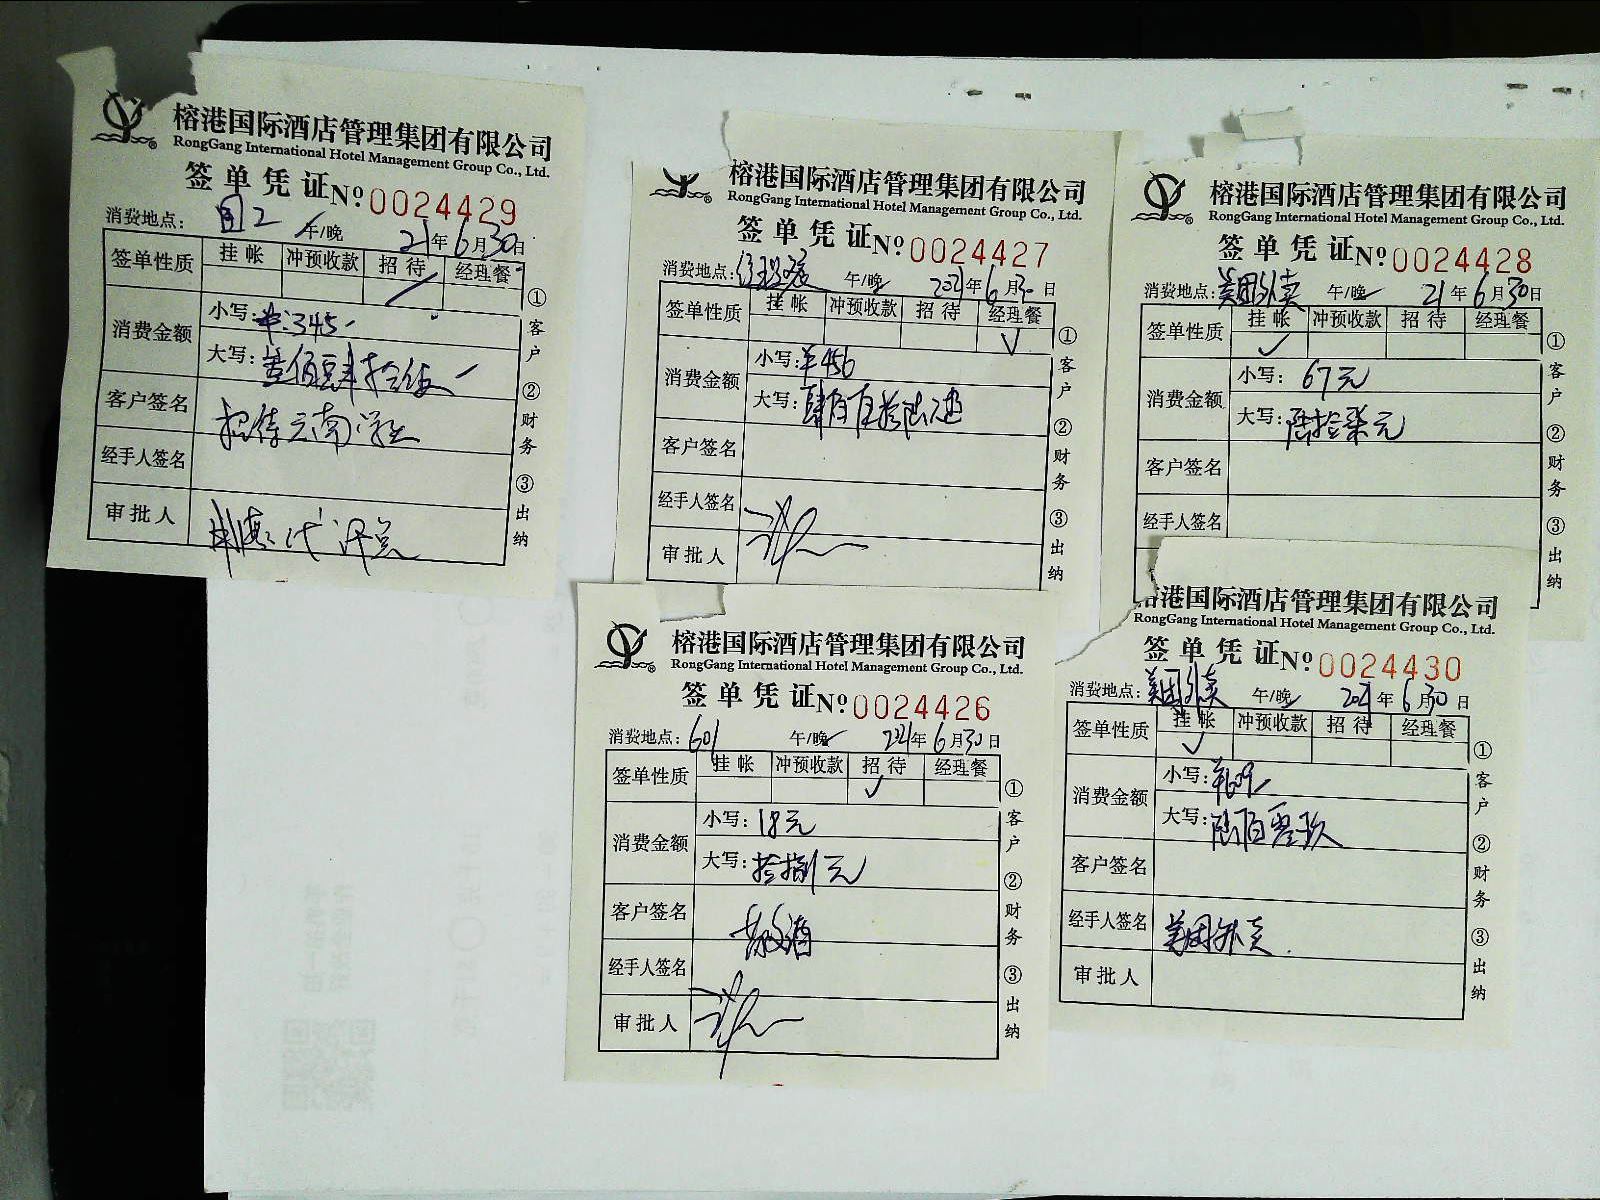 榕港国际酒店管理集团有限公司
RongGang International Hotel Management Group Co., Ltd.
签单凭证 № 0024429
消费地点： 午/晚 21年6月30日
签单性质 挂帐 冲预收款 招待 经理餐
消费金额 小写：345
大写：
客户签名 招待云南学生
经手人签名
审批人
①客户 ②财务 ③出纳
榕港国际酒店管理集团有限公司
RongGang International Hotel Management Group Co., Ltd.
签单凭证 № 0024427
消费地点： 午/晚✓ 2021年6月30日
签单性质 挂帐 冲预收款 招待 经理餐
✓
消费金额 小写：¥456
大写：肆佰伍拾陆元
客户签名
经手人签名
审批人
①客户 ②财务 ③出纳
榕港国际酒店管理集团有限公司
RongGang International Hotel Management Group Co., Ltd.
签单凭证 № 0024428
消费地点：美团外卖 午/晚✓ 21年6月30日
签单性质 挂帐 冲预收款 招待 经理餐
✓
消费金额 小写：67元
大写：陆拾柒元
客户签名
经手人签名
①客户 ②财务 ③出纳
榕港国际酒店管理集团有限公司
RongGang International Hotel Management Group Co., Ltd.
签单凭证 № 0024426
消费地点：601 午/晚✓ 2021年6月30日
签单性质 挂帐 冲预收款 招待 经理餐
✓
消费金额 小写：18元
大写：拾捌元
客户签名 敬酒
经手人签名
审批人
①客户 ②财务 ③出纳
港国际酒店管理集团有限公司
RongGang International Hotel Management Group Co., Ltd.
签单凭证 № 0024430
消费地点：美团外卖 午/晚✓ 2021年6月30日
签单性质 挂帐 冲预收款 招待 经理餐
✓
消费金额 小写：¥609
大写：陆佰零玖
客户签名
经手人签名 美团外卖
审批人
①客户 ②财务 ③出纳